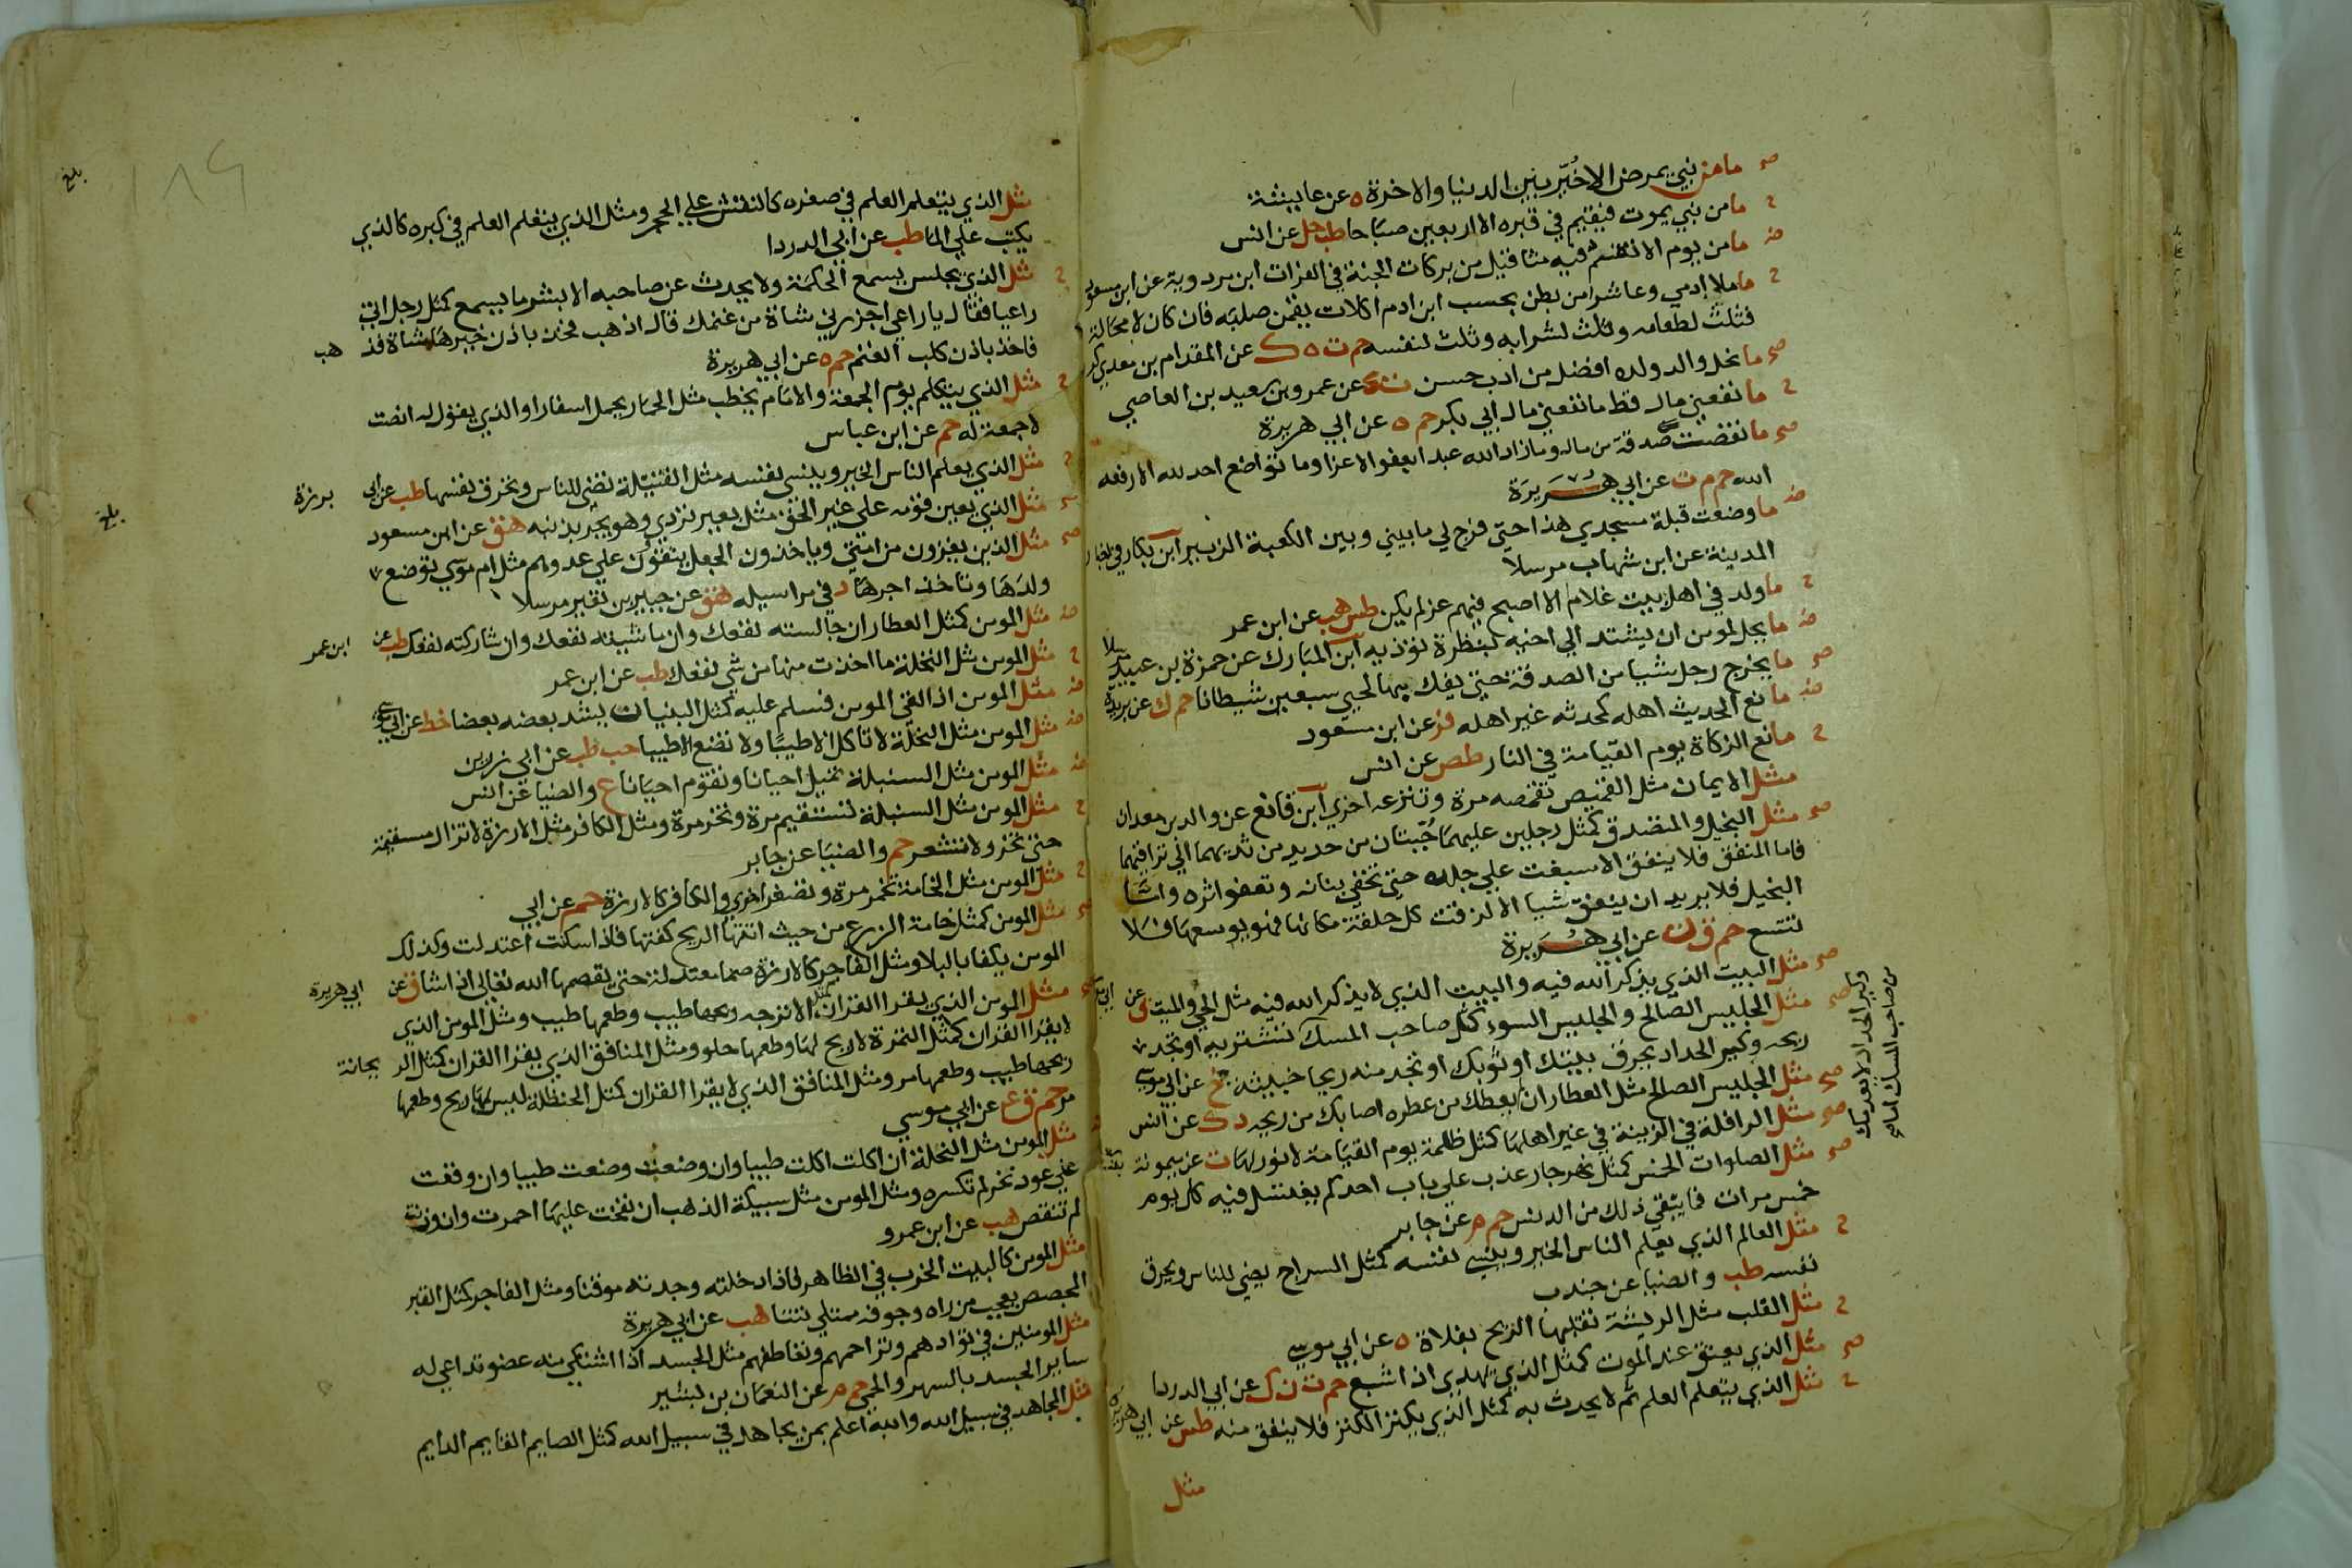 صح ما من نبي يمرض الا خير بين الدنيا والاخرة ه عن عايشة
ح ما من نبي يموت فيقيم في قبره الا اربعين صباحا طب حل عن انس
ض ما من يوم الا يقسم فيه مثاقيل من بركات الجنة في الفرات ابن مردوية عن ابن مسعود
ح ما ملا ادمي وعا شرا من بطن بحسب ابن ادم اكلات يقمن صلبه فان كان لا محالة
فثلث لطعامه وثلث لشرابه وثلث لنفسه حم ت ه ك عن المقدام بن معدي كرب
صح ما نحل والد ولده افضل من ادب حسن ت ك عن عمرو بن سعيد بن العاصي
ح ما نفعني مال قط ما نفعني مال ابي بكر حم ه عن ابي هريرة
صح ما نقصت صدقة من مال وما زاد الله عبدا بعفو الا عزا وما تواضع احد لله الا رفعه
الله حم م ت عن ابي هريرة
ض ما وضعت قبلة مسجدي هذا حتي فرج لي ما بيني وبين الكعبة الزبير ابن بكار في اخبار
المدينة عن ابن شهاب مرسلا
ح ما ولد في اهل بيت غلام الا اصبح فيهم عز لم يكن طس هب عن ابن عمر
ض ما يحل لمومن ان يشتد الي اخيه بنظرة توذيه ابن المبارك عن حمزة بن عبيد مرسلا
صح ما يخرج رجل شيا من الصدقة حتي يفك بها لحيي سبعين شيطانا حم ك عن بريدة
ض مانع الحديث اهله كمحدثه غير اهله فر عن ابن مسعود
ح مانع الزكاة يوم القيامة في النار طص عن انس
مثل الايمان مثل القميص تقمصه مرة وتنزعه اخري ابن قانع عن والد بن معدان
صح مثل البخيل والمتصدق كمثل رجلين عليهما جبتان من حديد من ثديهما الي تراقيهما
فاما المنفق فلا ينفق الا سبغت علي جلده حتي تخفي بنانه وتعفو اثره واما
البخيل فلا يريد ان ينفق شيا الا لزقت كل حلقة مكانها فهو يوسعها فلا
تتسع حم ق ن عن ابي هريرة
صح مثل البيت الذي يذكر الله فيه والبيت الذي لا يذكر الله فيه مثل الحي والميت ق عن ابي موسي
صح مثل الجليس الصالح والجليس السوء كمثل صاحب المسك وكير الحداد لا يعدمك من صاحب المسك اما ان تشتريه او تجد
ريحه وكير الحداد يحرق بيتك او ثوبك او تجد منه ريحا خبيثة خ عن ابي موسي
صح مثل الجليس الصالح مثل العطار ان لم يعطك من عطره اصابك من ريحه د ك عن انس
صح مثل الرافلة في الزينة في غير اهلها كمثل ظلمة يوم القيامة لا نور لها ت عن ميمونة
صح مثل الصلوات الخمس كمثل نهر جار عذب علي باب احدكم يغتسل فيه كل يوم
خمس مرات فما يبقي ذلك من الدنس حم م عن جابر
ح مثل العالم الذي يعلم الناس الخير وينسي نفسه كمثل السراج يضي للناس ويحرق
نفسه طب والضيا عن جندب
ح مثل القلب مثل الريشة تقلبها الريح بفلاة ه عن ابي موسي
صح مثل الذي يعتق عند الموت كمثل الذي يهدي اذا شبع حم ت ن ك عن ابي الدردا
ح مثل الذي يتعلم العلم ثم لا يحدث به كمثل الذي يكنز الكنز فلا ينفق منه طس عن ابي هريرة
مثل
بلغ
مثل الذي يتعلم العلم في صغره كالنقش علي الحجر ومثل الذي يتعلم العلم في كبره كالذي
يكتب علي الما طب عن ابي الدردا
ح مثل الذي يجلس يسمع الحكمة ولا يحدث عن صاحبه الا بشر ما يسمع كمثل رجل اتي
راعيا فقال يا راعي اجزرني شاة من غنمك قال اذهب فخذ باذن خيرها شاة فذهب
فاخذ باذن كلب الغنم حم ه عن ابي هريرة
ح مثل الذي يتكلم يوم الجمعة والامام يخطب مثل الحمار يحمل اسفارا والذي يقول له انصت
لا جمعة له حم عن ابن عباس
ح مثل الذي يعلم الناس الخير وينسي نفسه مثل الفتيلة تضي للناس وتحرق نفسها طب عن ابي برزة
صح مثل الذي يعين قومه علي غير الحق مثل بعير تردي وهو يجر بذنبه هق عن ابن مسعود
بلغ
صح مثل الذين يغزون من امتي وياخذون الجعل يتقوون علي عدوهم مثل ام موسي ترضع
ولدها وتاخذ اجرها د في مراسيله هق عن جبير بن نفير مرسلا
ض مثل المومن كمثل العطار ان جالسته نفعك وان ماشيته نفعك وان شاركته نفعك طب عن ابن عمر
ح مثل المومن مثل النخلة ما اخذت منها من شي نفعك طب عن ابن عمر
ض مثل المومن اذا لقي المومن فسلم عليه كمثل البنيان يشد بعضه بعضا خط عن ابي موسي
ض مثل المومن مثل النحلة لا تاكل الا طيبا ولا تضع الا طيبا حب طب عن ابي رزين
ض مثل المومن مثل السنبلة تميل احيانا وتقوم احيانا ع والضيا عن انس
ح مثل المومن مثل السنبلة تستقيم مرة وتخر مرة ومثل الكافر مثل الارزة لا تزال مستقيمة
حتي تخر ولا تشعر حم والضيا عن جابر
ح مثل المومن مثل الخامة تحمر مرة وتصفر اخري والكافر كالارزة حم عن ابي
صح مثل المومن كمثل خامة الزرع من حيث اتتها الريح كفتها فاذا سكنت اعتدلت وكذلك
المومن يكفا بالبلا ومثل الفاجر كالارزة صما معتدلة حتي يقصمها الله تعالي اذا شا ق عن ابي هريرة
صح مثل المومن الذي يقرا القران كمثل الاترجه ريحها طيب وطعمها طيب ومثل المومن الذي
لا يقرا القران كمثل التمرة لا ريح لها وطعمها حلو ومثل المنافق الذي يقرا القران كمثل الريحانة
ريحها طيب وطعمها مر ومثل المنافق الذي لا يقرا القران كمثل الحنظلة ليس لها ريح وطعمها
مر حم ق ع عن ابي موسي
مثل المومن مثل النحلة ان اكلت اكلت طيبا وان وضعت وضعت طيبا وان وقعت
علي عود نخر لم تكسره ومثل المومن مثل سبيكة الذهب ان نفخت عليها احمرت وان وزنت
لم تنقص هب عن ابن عمرو
مثل المومن كالبيت الخرب في الظاهر فاذا دخلته وجدته مونقا ومثل الفاجر كمثل القبر
المجصص يعجب من راه وجوفه ممتلي نتنا هب عن ابي هريرة
مثل المومنين في توادهم وتراحمهم وتعاطفهم مثل الجسد اذا اشتكي منه عضو تداعي له
ساير الجسد بالسهر والحمي حم م عن النعمان بن بشير
مثل المجاهد في سبيل الله والله اعلم بمن يجاهد في سبيل الله كمثل الصايم القايم الدايم